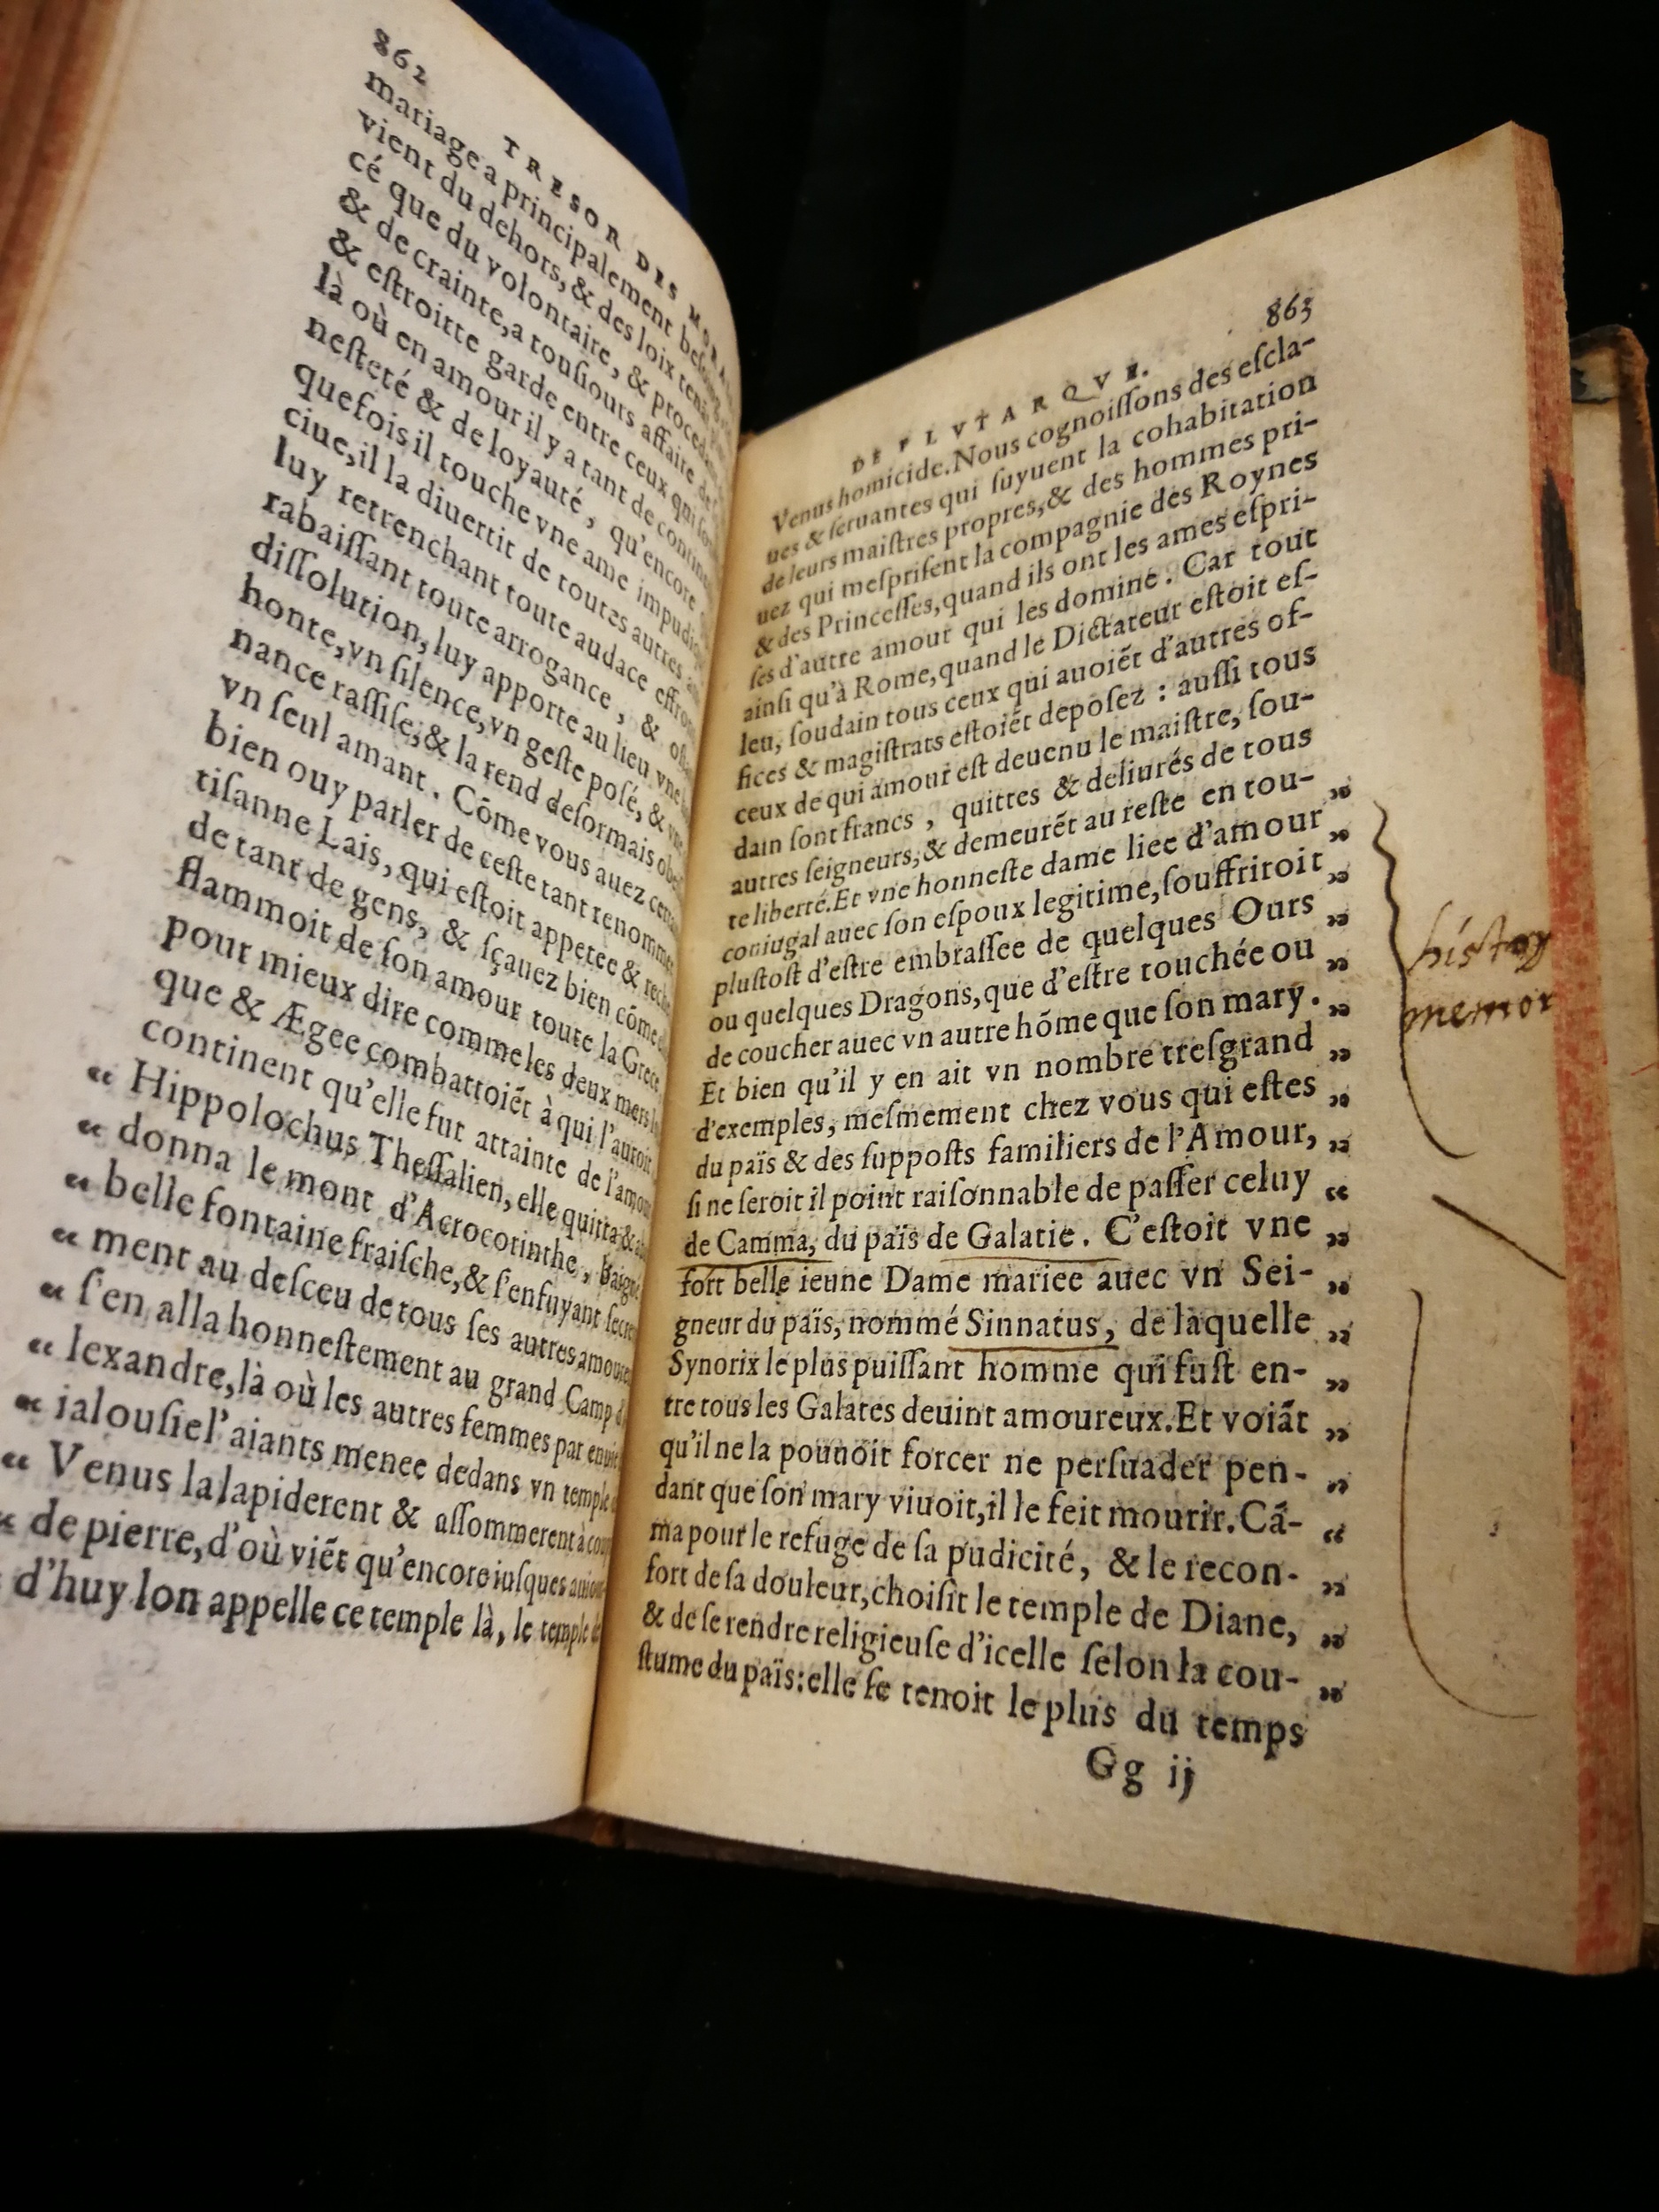 862
TRESOR DES MORA
mariage a principalement besoing
vient du dehors, & des loix
cé que du volontaire, & procedant
& de crainte, a tousiours affaire de
& estroitte garde entre ceux qui
là où en amour il y a tant de contine
nesteté & de loyauté, qu'encore
quefois il touche vne ame impudi
ciue, il la diuertit de toutes autres
luy retrenchant toute audace effron
rabaissant toute arrogance, &
dissolution, luy apporte au lieu vne
honte, vn silence, vn geste posé, & vne
nance rassise, & la rend desormais
vn seul amant. Cõme vous auez
bien ouy parler de ceste tant renommee
tisanne Lais, qui estoit appetee &
de tant de gens, & sçauez bien cõme
flammoit de son amour toute la Grece
pour mieux dire comme les deux mers
que & Ægee combattoiẽt à qui l'auroit
continent qu'elle fut attainte de l'amour
“ Hippolochus Thessalien, elle quitta &
“ donna le mont d'Acrocorinthe, baigné
“ belle fontaine fraische, & s'enfuyant secre
“ ment au desceu de tous ses autres amoureux
“ s'en alla honnestement au grand Camp
“ lexandre, là où les autres femmes par enuie
“ ialousie l'aiants menee dedans vn temple
“ Venus la lapiderent & assommerent à coups
“ de pierre, d'où viẽt qu'encore iusques
d'huy lon appelle ce temple là, le temple de
863
DE PLVTARQVE.
Venus homicide. Nous cognoissons des escla-
ues & seruantes qui fuyuent la cohabitation
de leurs maistres propres, & des hommes pri-
uez qui mesprisent la compagnie des Roynes
& des Princesses, quand ils ont les ames espri-
ses d'autre amour qui les domine. Car tout
ainsi qu'à Rome, quand le Dictateur estoit es-
leu, soudain tous ceux qui auoiẽt d'autres of-
fices & magistrats estoiẽt deposez : aussi tous
ceux de qui amour est deuenu le maistre, sou-
dain sont francs, quittes & deliurés de tous
autres seigneurs, & demeurẽt au reste en tou- ”
te liberté. Et vne honneste dame liee d'amour ”
coniugal auec son espoux legitime, souffriroit ”
plustost d'estre embrassee de quelques Ours ”
ou quelques Dragons, que d'estre touchée ou ”
de coucher auec vn autre hõme que son mary. ”
Et bien qu'il y en ait vn nombre tresgrand ”
d'exemples, mesmement chez vous qui estes ”
du païs & des supposts familiers de l'Amour, ”
si ne seroit il point raisonnable de passer celuy “
de Camma, du païs de Galatie. C'estoit vne ”
fort belle ieune Dame mariee auec vn Sei- ”
gneur du païs, nommé Sinnatus, de laquelle ”
Synorix le plus puissant homme qui fust en- ”
tre tous les Galates deuint amoureux. Et voiãt ”
qu'il ne la pouuoit forcer ne persuader pen- ”
dant que son mary viuoit, il le feit mourir. Cã- “
ma pour le refuge de sa pudicité, & le recon- ”
fort de sa douleur, choisit le temple de Diane, ”
& de se rendre religieuse d'icelle selon la cou- ”
stume du païs: elle se tenoit le plus du temps
Gg ij
memor